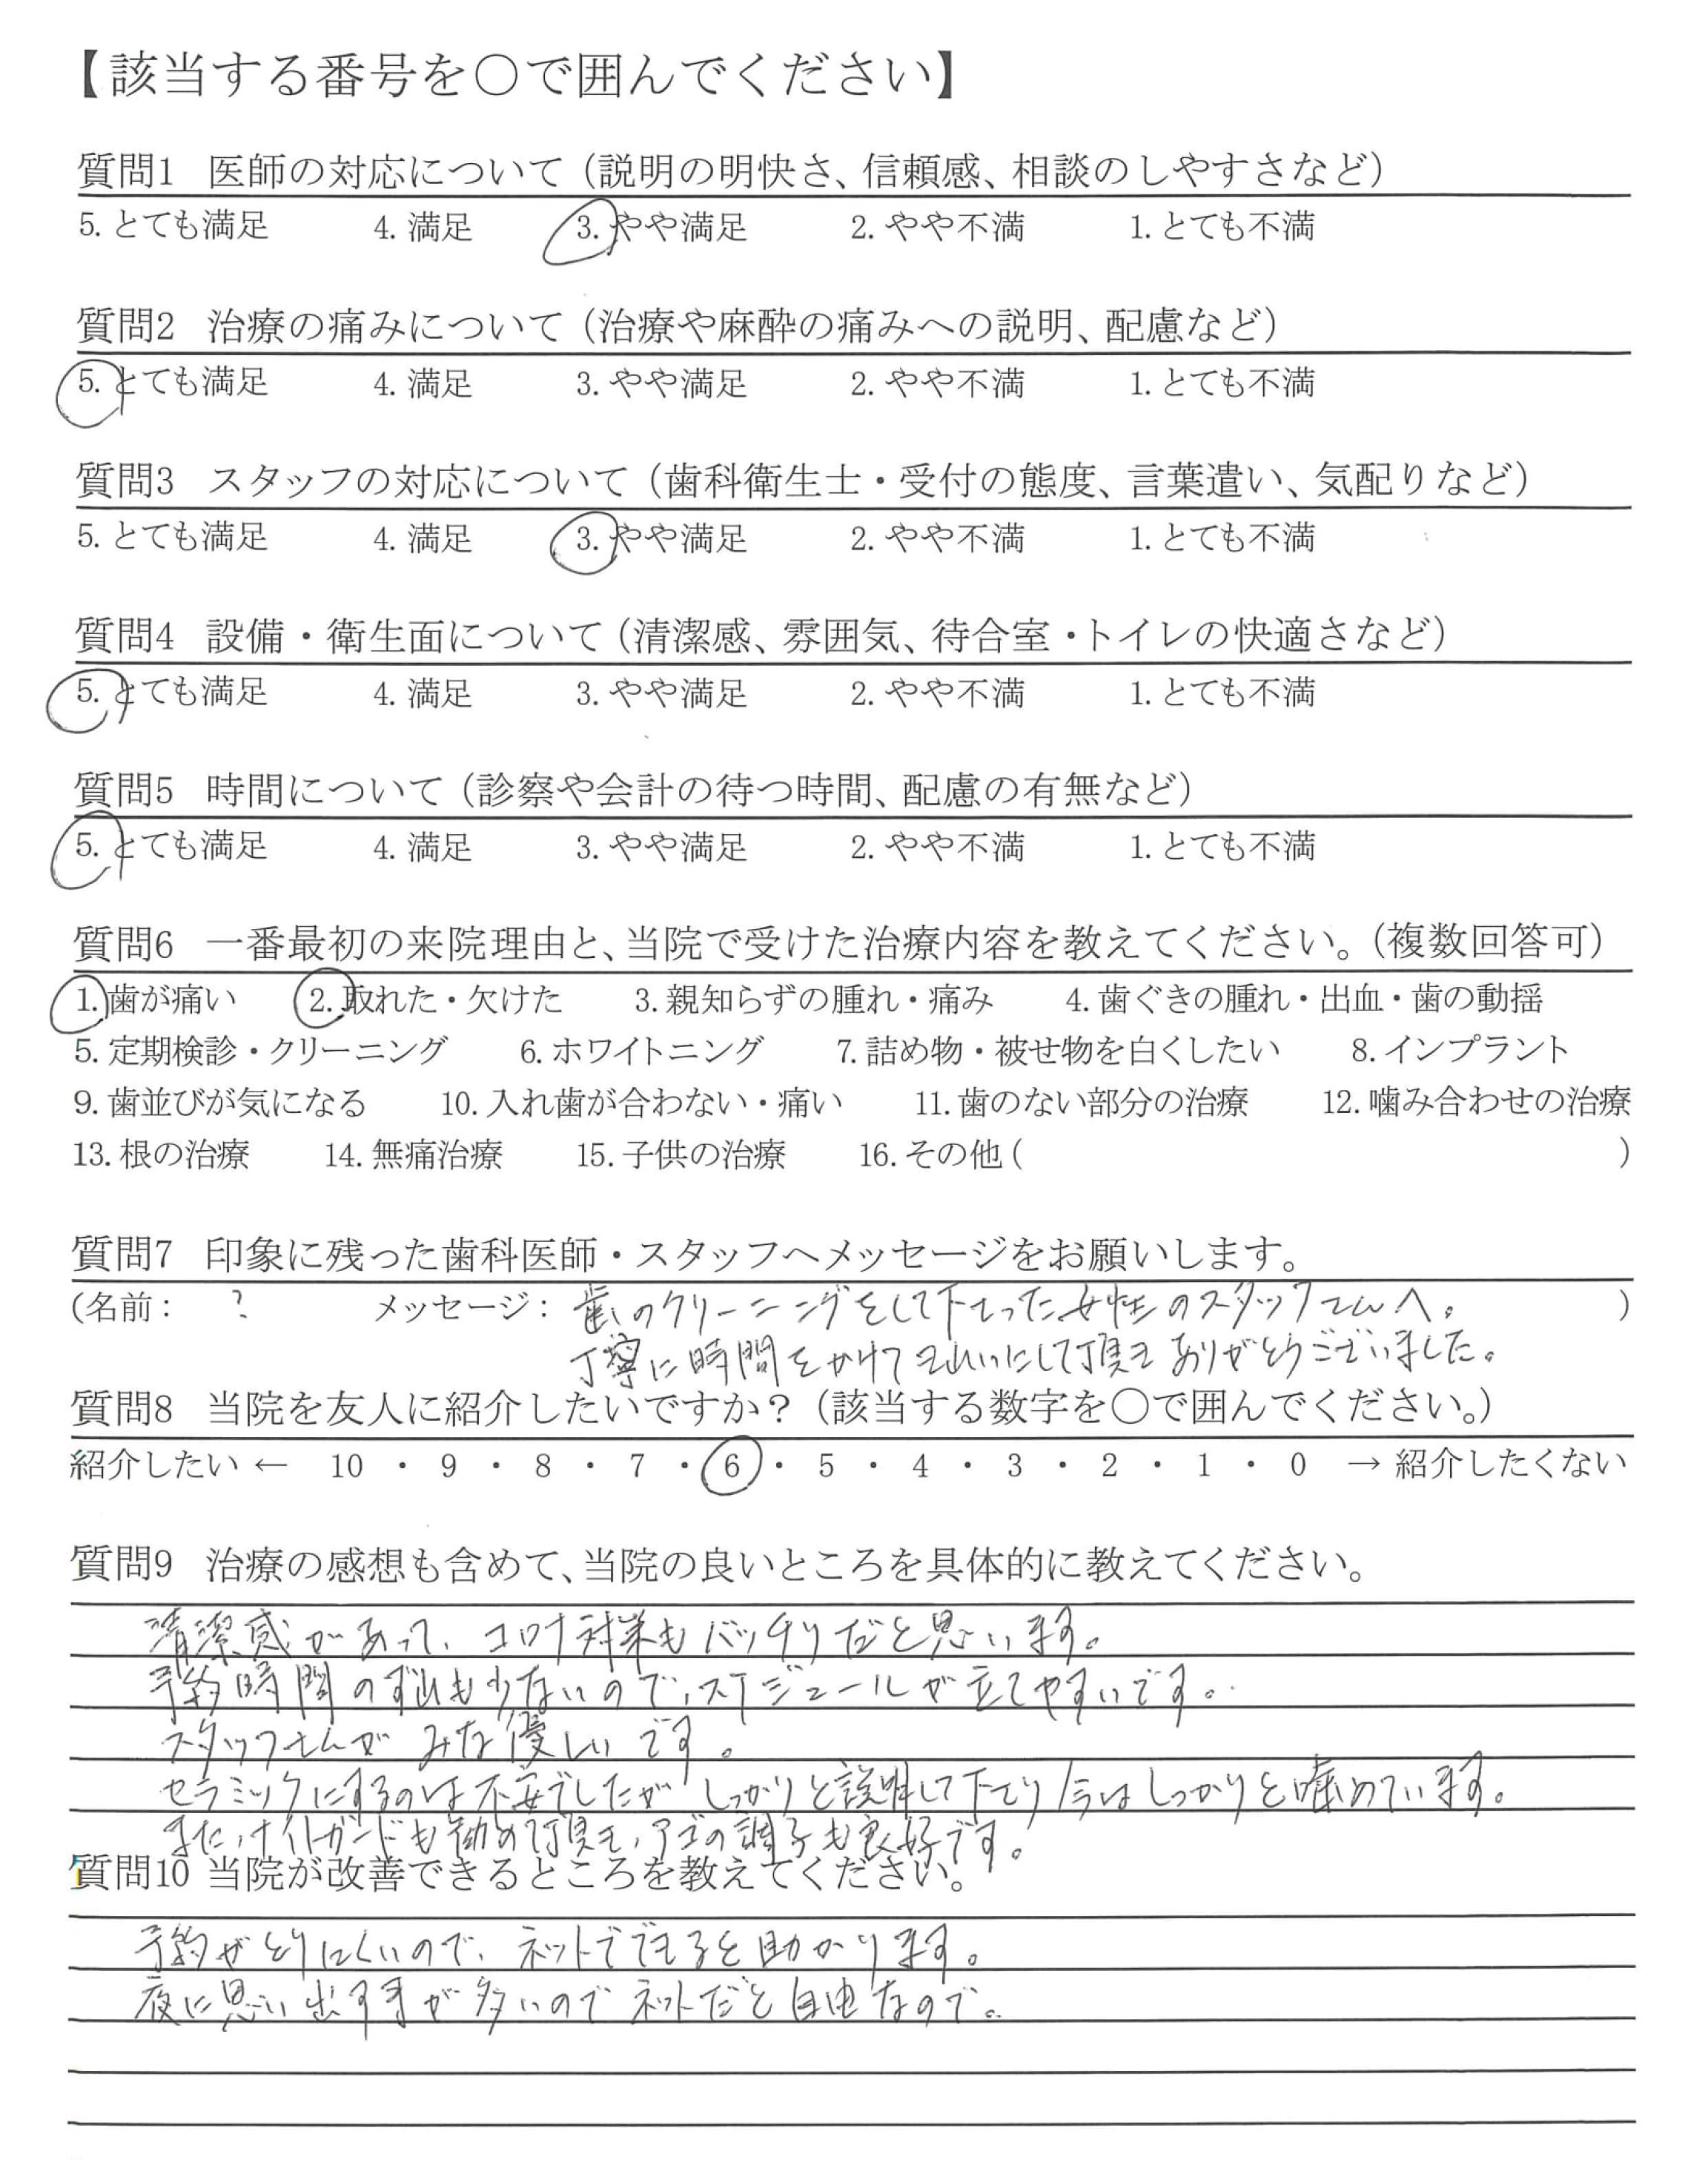 【該当する番号を○で囲んでください】
質問1 医師の対応について（説明の明快さ、信頼感、相談のしやすさなど）
5. とても満足 4. 満足 3. やや満足 2. やや不満 1. とても不満
質問2 治療の痛みについて（治療や麻酔の痛みへの説明、配慮など）
5. とても満足 4. 満足 3. やや満足 2. やや不満 1. とても不満
質問3 スタッフの対応について（歯科衛生士・受付の態度、言葉遣い、気配りなど）
5. とても満足 4. 満足 3. やや満足 2. やや不満 1. とても不満
質問4 設備・衛生面について（清潔感、雰囲気、待合室・トイレの快適さなど）
5. とても満足 4. 満足 3. やや満足 2. やや不満 1. とても不満
質問5 時間について（診察や会計の待つ時間、配慮の有無など）
5. とても満足 4. 満足 3. やや満足 2. やや不満 1. とても不満
質問6 一番最初の来院理由と、当院で受けた治療内容を教えてください。（複数回答可）
1. 歯が痛い 2. 取れた・欠けた 3. 親知らずの腫れ・痛み 4. 歯ぐきの腫れ・出血・歯の動揺
5. 定期検診・クリーニング 6. ホワイトニング 7. 詰め物・被せ物を白くしたい 8. インプラント
9. 歯並びが気になる 10. 入れ歯が合わない・痛い 11. 歯のない部分の治療 12. 噛み合わせの治療
13. 根の治療 14. 無痛治療 15. 子供の治療 16. その他 ( )
質問7 印象に残った歯科医師・スタッフへメッセージをお願いします。
(名前： ？ メッセージ： 歯のクリーニングをして下さった女性のスタッフさんへ。 )
丁寧に時間をかけてきれいにして頂きありがとうございました。
質問8 当院を友人に紹介したいですか？（該当する数字を○で囲んでください。）
紹介したい ← 10 ・ 9 ・ 8 ・ 7 ・ 6 ・ 5 ・ 4 ・ 3 ・ 2 ・ 1 ・ 0 → 紹介したくない
質問9 治療の感想も含めて、当院の良いところを具体的に教えてください。
清潔感があって、コロナ対策もバッチリだと思います。
予約時間のずれも少ないので、スケジュールが立てやすいです。
スタッフさんが みな優しい です。
セラミックにするのは不安でしたが しっかりと説明して下さり 今はしっかりと噛めています。
また、ナイトガードも勧めて頂き、アゴの調子も良好です。
質問10 当院が改善できるところを教えてください。
予約がとりにくいので、ネットでできると助かります。
夜に思い出す事が多いのでネットだと自由なので。